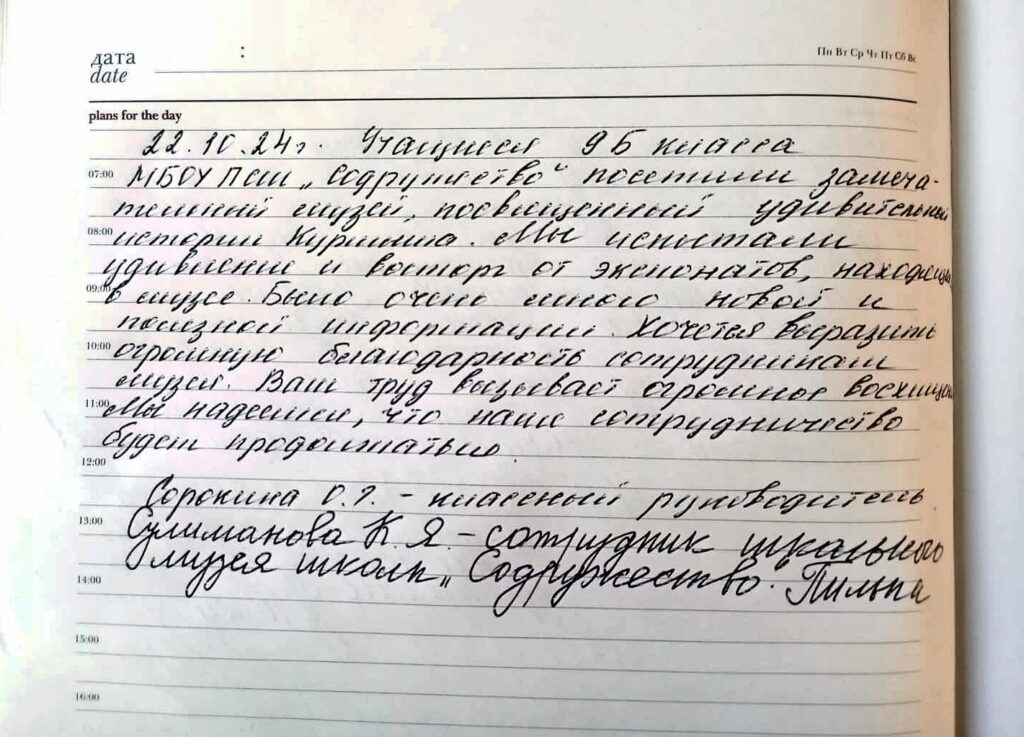 дата :
date
Пн Вт Ср Чт Пт Сб Вс
plans for the day
22.10.24г. Учащиеся 9Б класса
07:00 МБОУ ПСШ „Содружество“ посетили замеча-
тельный музей, посвященный удивительной
08:00 истории Куршина. Мы испытали
удивление и восторг от экспонатов, находящихся
09:00 в музее. Было очень много новой и
полезной информации. Хочется выразить
10:00 огромную благодарность сотрудникам
музея. Ваш труд вызывает огромное восхищение
11:00 Мы надеемся, что наше сотрудничество
будет продолжаться.
12:00
Сорокина О.Г. - классный руководитель
13:00 Сулиманова К.Я. - сотрудник школьного
музея школы „Содружество.
14:00
15:00
16:00